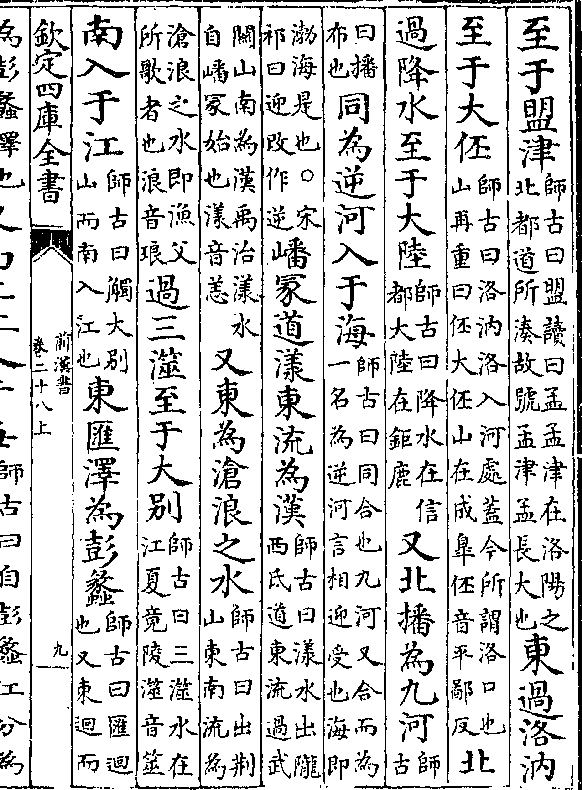 至于盟津師古曰盟讀曰孟孟津在洛陽之北都道所湊故號孟津孟長大也東過洛汭
至于大伾師古曰洛汭洛入河處蓋今所謂洛口也山再重曰伾大伾山在成皐伾音平鄙反北
過降水至于大陸師古曰降水在信都大陸在鉅鹿又北播為九河師古
曰播布也同為逆河入于海師古曰同合也九河又合而為一名為逆河言相迎受也海即
渤海是也○宋祁曰迎改作逆嶓冢道漾東流為漢師古曰漾水出隴西氐道東流過武
關山南為漢禹治漾水自嶓冢始也漾音恙又東為滄浪之水師古曰出荆山東南流為
滄浪之水即漁父所歌者也浪音琅過三澨至于大别師古曰三澨水在江夏竟陵澨音筮
南入于江師古曰觸大别山而南入江也東匯澤為彭蠡師古曰匯迴也又東迴而
欽定四庫全書
前漢書
卷二十八上
九
為彭蠡澤也師古曰自彭蠡江分為